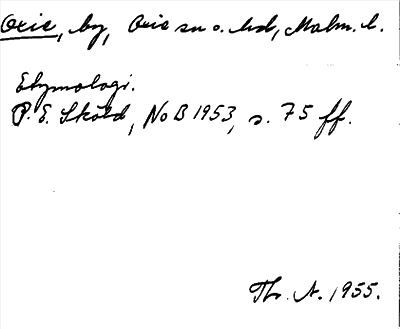 Oxie, by, Oxie sn o. hd, Malm. l.
Etymologi.
P. E. Sköld, NoB 1953, s. 75 ff.
Th. A. 1955.